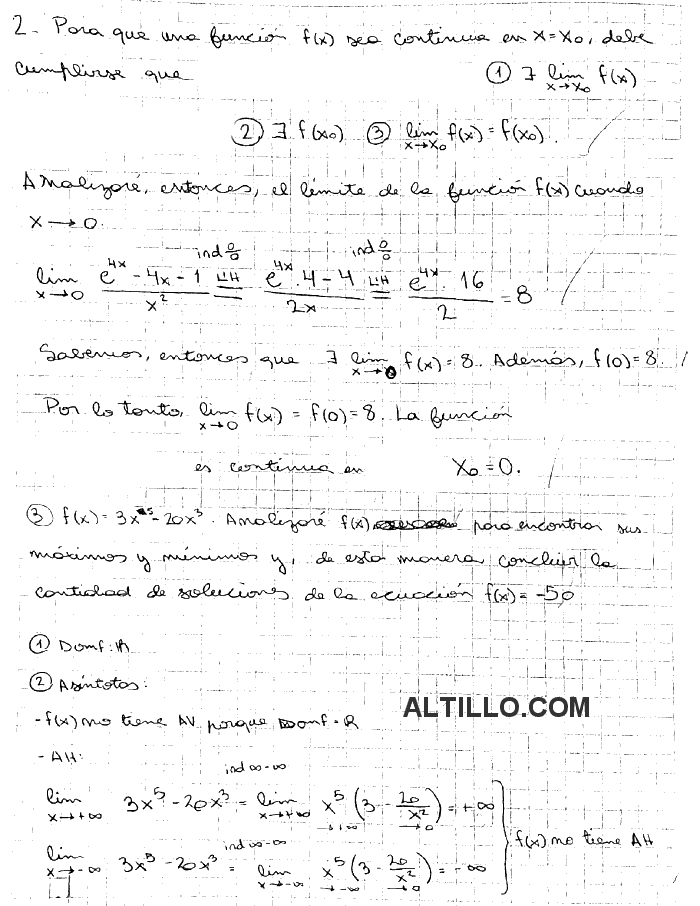 2- Para que una función f(x) sea continua en x=x₀, debe
cumplirse que ① ∃ lim x→x₀ f(x)
② ∃ f(x₀) ③ lim x→x₀ f(x) = f(x₀).
Analizaré, entonces, el límite de la función f(x) cuando
x → 0.
lim x→0 (e^(4x) - 4x - 1)/x² =(L'H, ind 0/0) (e^(4x)·4 - 4)/(2x) =(L'H, ind 0/0) (e^(4x)·16)/2 = 8
Sabemos, entonces que ∃ lim x→0 f(x) = 8. Además, f(0) = 8.
Por lo tanto, lim x→0 f(x) = f(0) = 8. La función
es continua en x₀ = 0.
③ f(x) = 3x⁵ - 20x³. Analizaré f(x) para encontrar sus
máximos y mínimos y, de esta manera, concluir la
cantidad de soluciones de la ecuación f(x) = -50
① Dom f: ℝ
② Asíntotas:
- f(x) no tiene AV porque Dom f = ℝ
- AH:
lim x→+∞ 3x⁵ - 20x³ =(ind ∞-∞) lim x→+∞ x⁵ (→+∞) (3 - 20/x² (→0)) = +∞
lim x→-∞ 3x⁵ - 20x³ =(ind ∞-∞) lim x→-∞ x⁵ (→-∞) (3 - 20/x² (→0)) = -∞
} f(x) no tiene AH
ALTILLO.COM